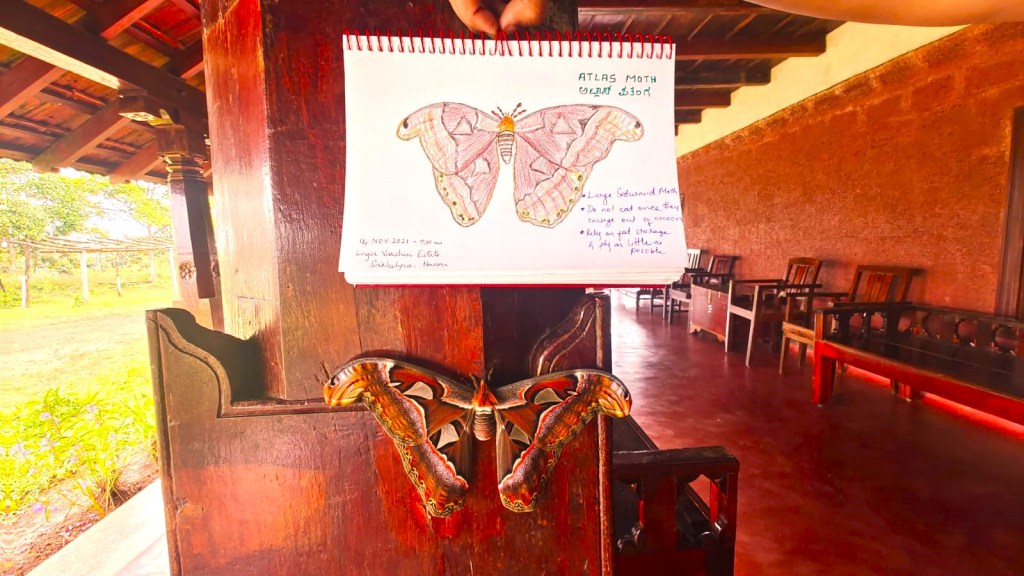 ATLAS MOTH
ಅಟ್ಲಾಸ್ ಪತಂಗ
• Large Saturniid Moth
• Do not eat once they
emerge out of cocoon
• Rely on fat storage
& fly as little as
possible
14 NOV 2021 -
Estate